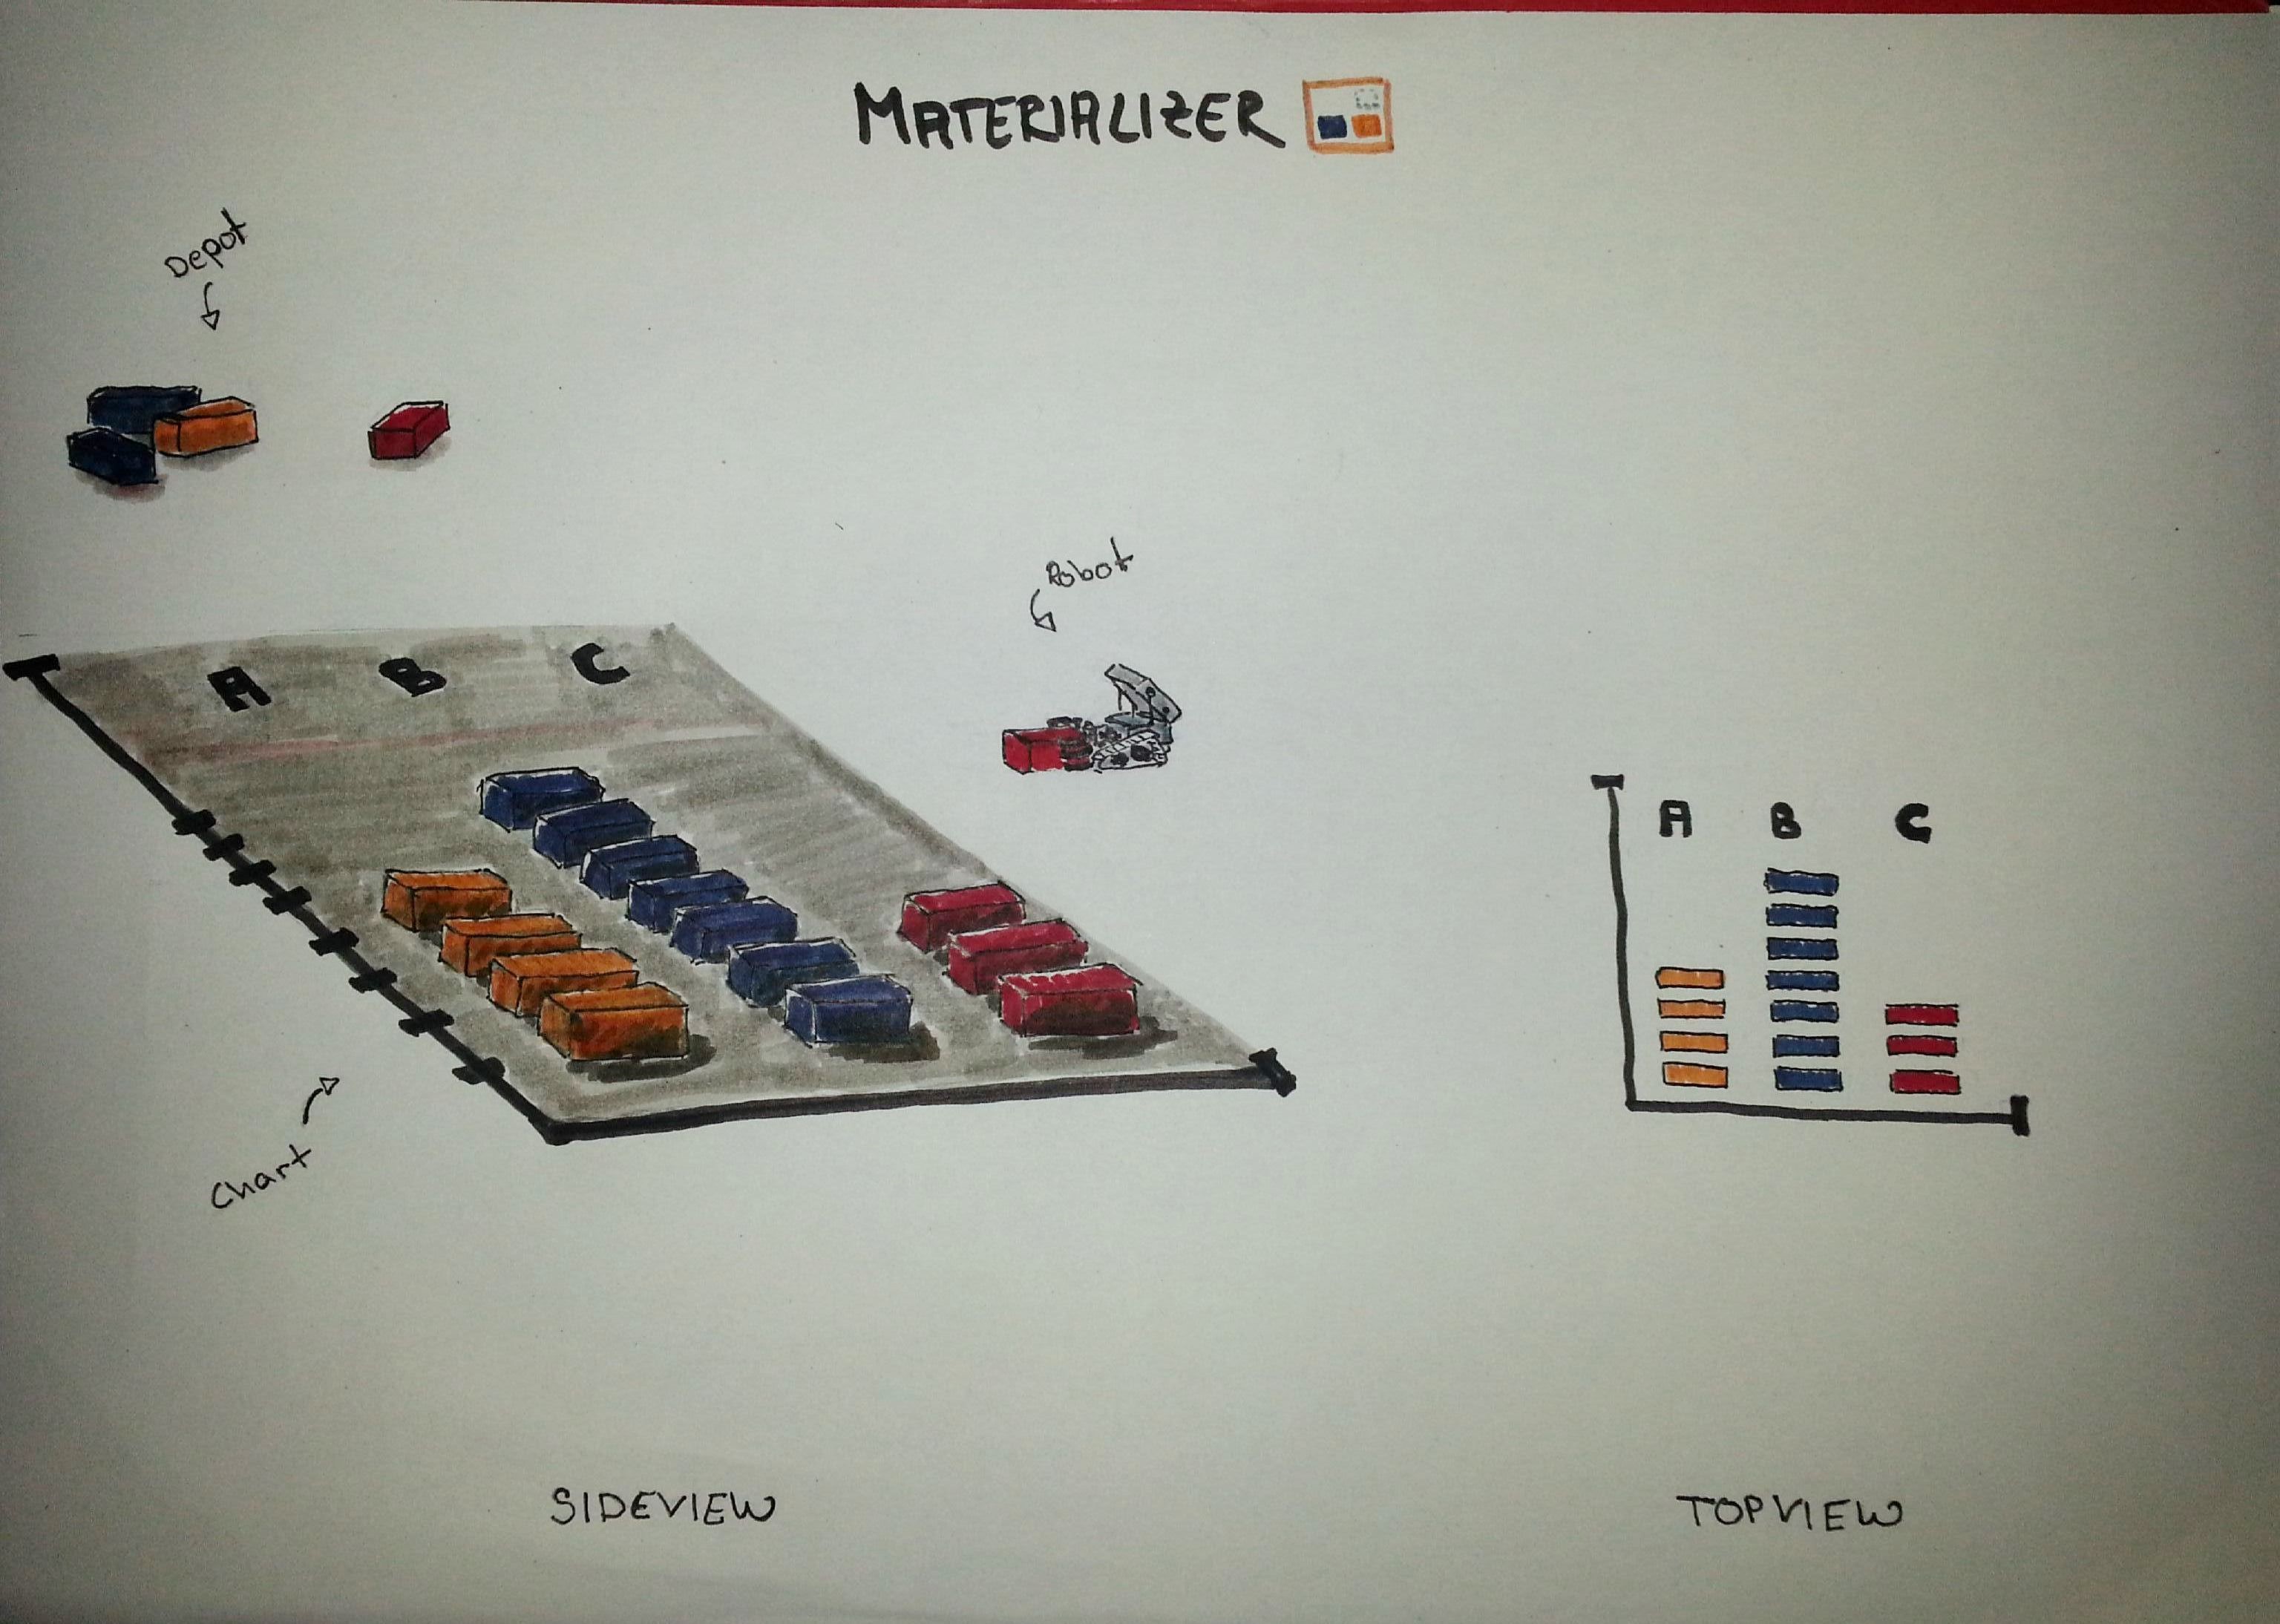 MATERIALIZER
Depot
Robot
A B C
A B C
Chart
SIDEVIEW
TOPVIEW